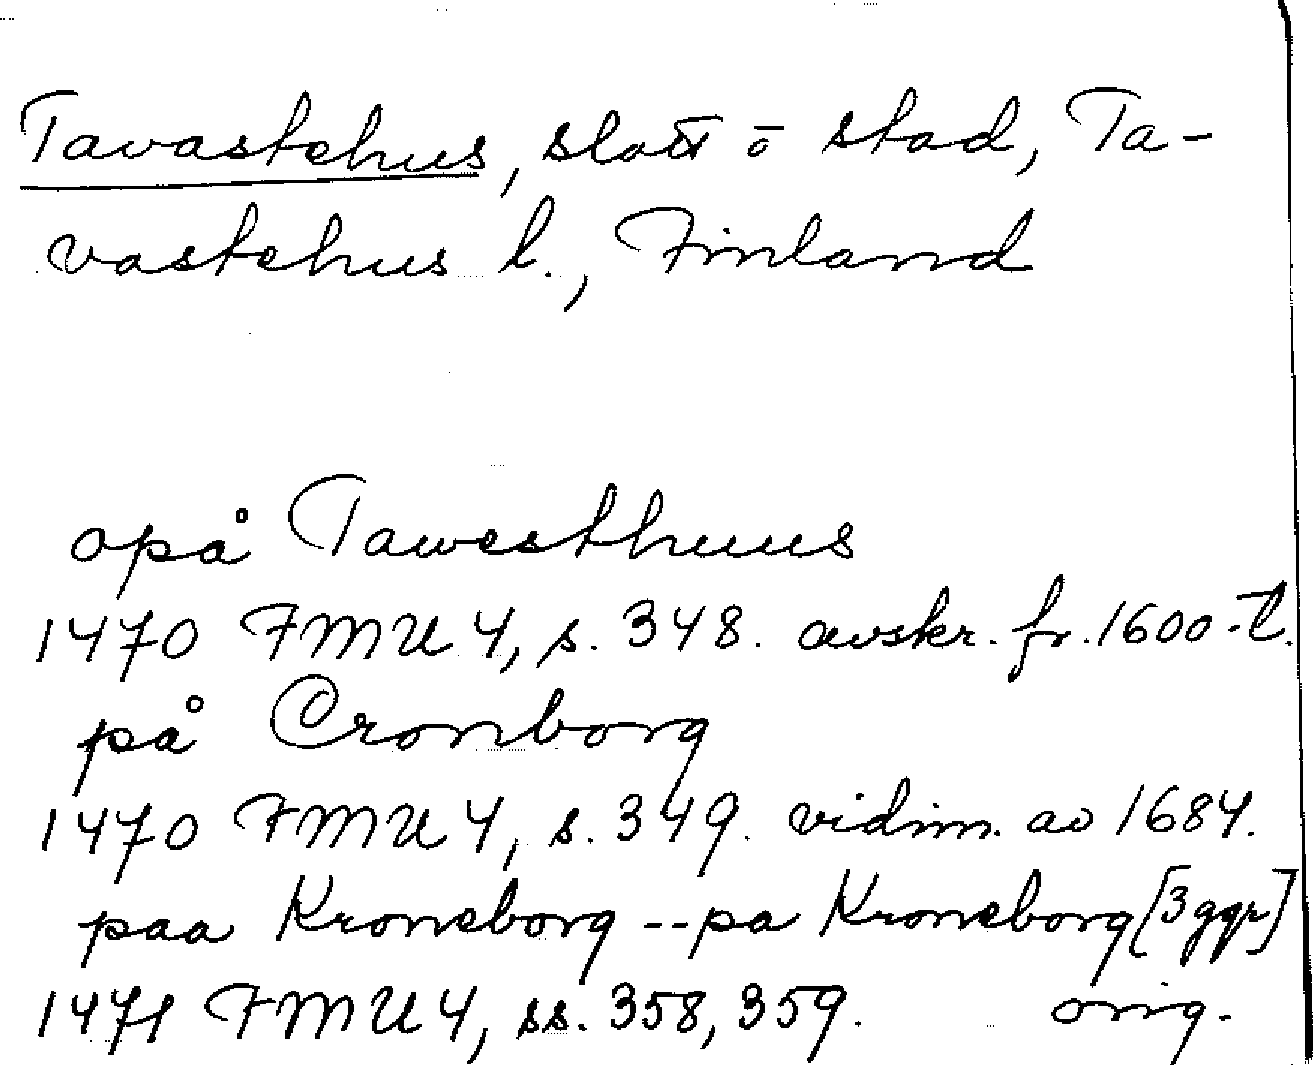 Tavastehus, slott ō stad, Ta-
vastehus l., Finland
opå Tawesthuus
1470 FMU 4, s. 348. avskr. fr. 1600-t.
på Cronborg
1470 FMU 4, s. 349. vidim. av 1684.
paa Kroneborg -- pa Kroneborg [3 ggr]
1471 FMU 4, ss. 358, 359. orig.